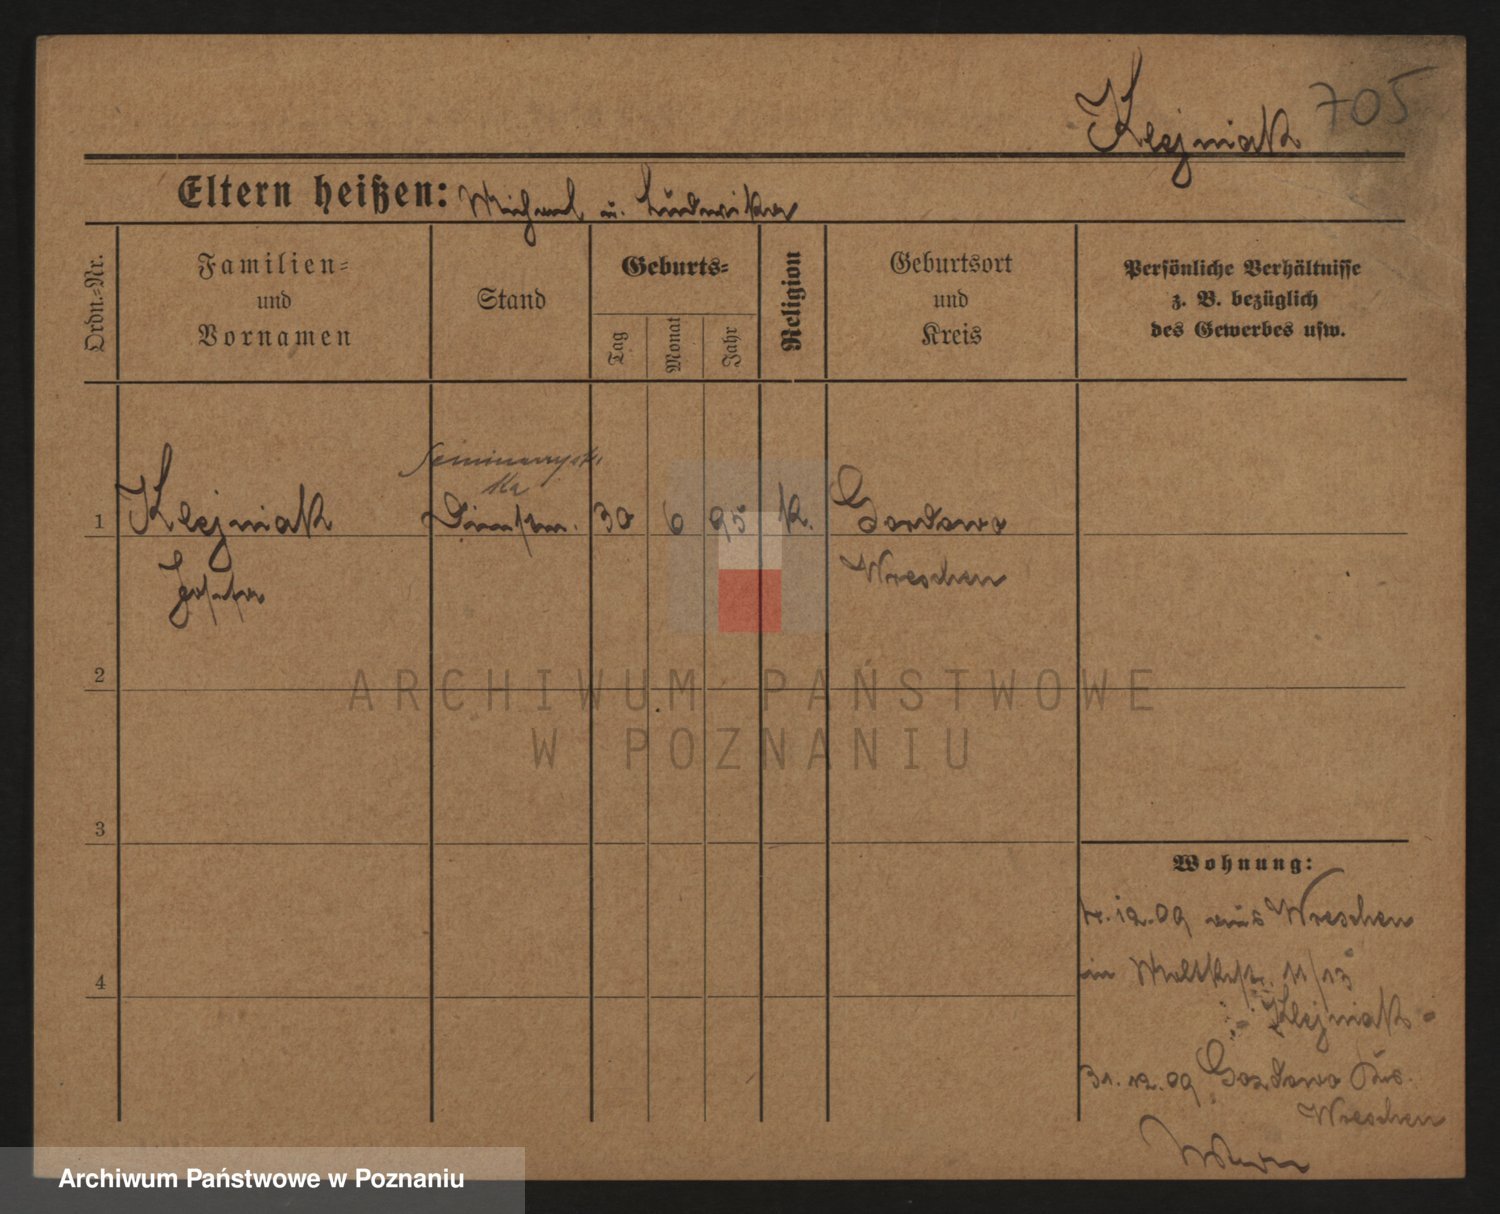 Klejniak 705
Eltern heißen: Michael u. Ludwika
Ordn.-Nr.
Familien-
und
Vornamen
Stand
Geburts-
Tag
Monat
Jahr
Religion
Geburtsort
und
Kreis
Persönliche Verhältnisse
z. B. bezüglich
des Gewerbes usw.
1 Klejniak 30 6 95 k.
Josefa
Wreschen
2
3
4
Wohnung:
12.09 aus Wreschen
in Moltkestr. 11/13
Klejniak
31.12.09 Gozdowo Krs.
Wreschen
ARCHIWUM PAŃSTWOWE
W POZNANIU
Archiwum Państwowe w Poznaniu